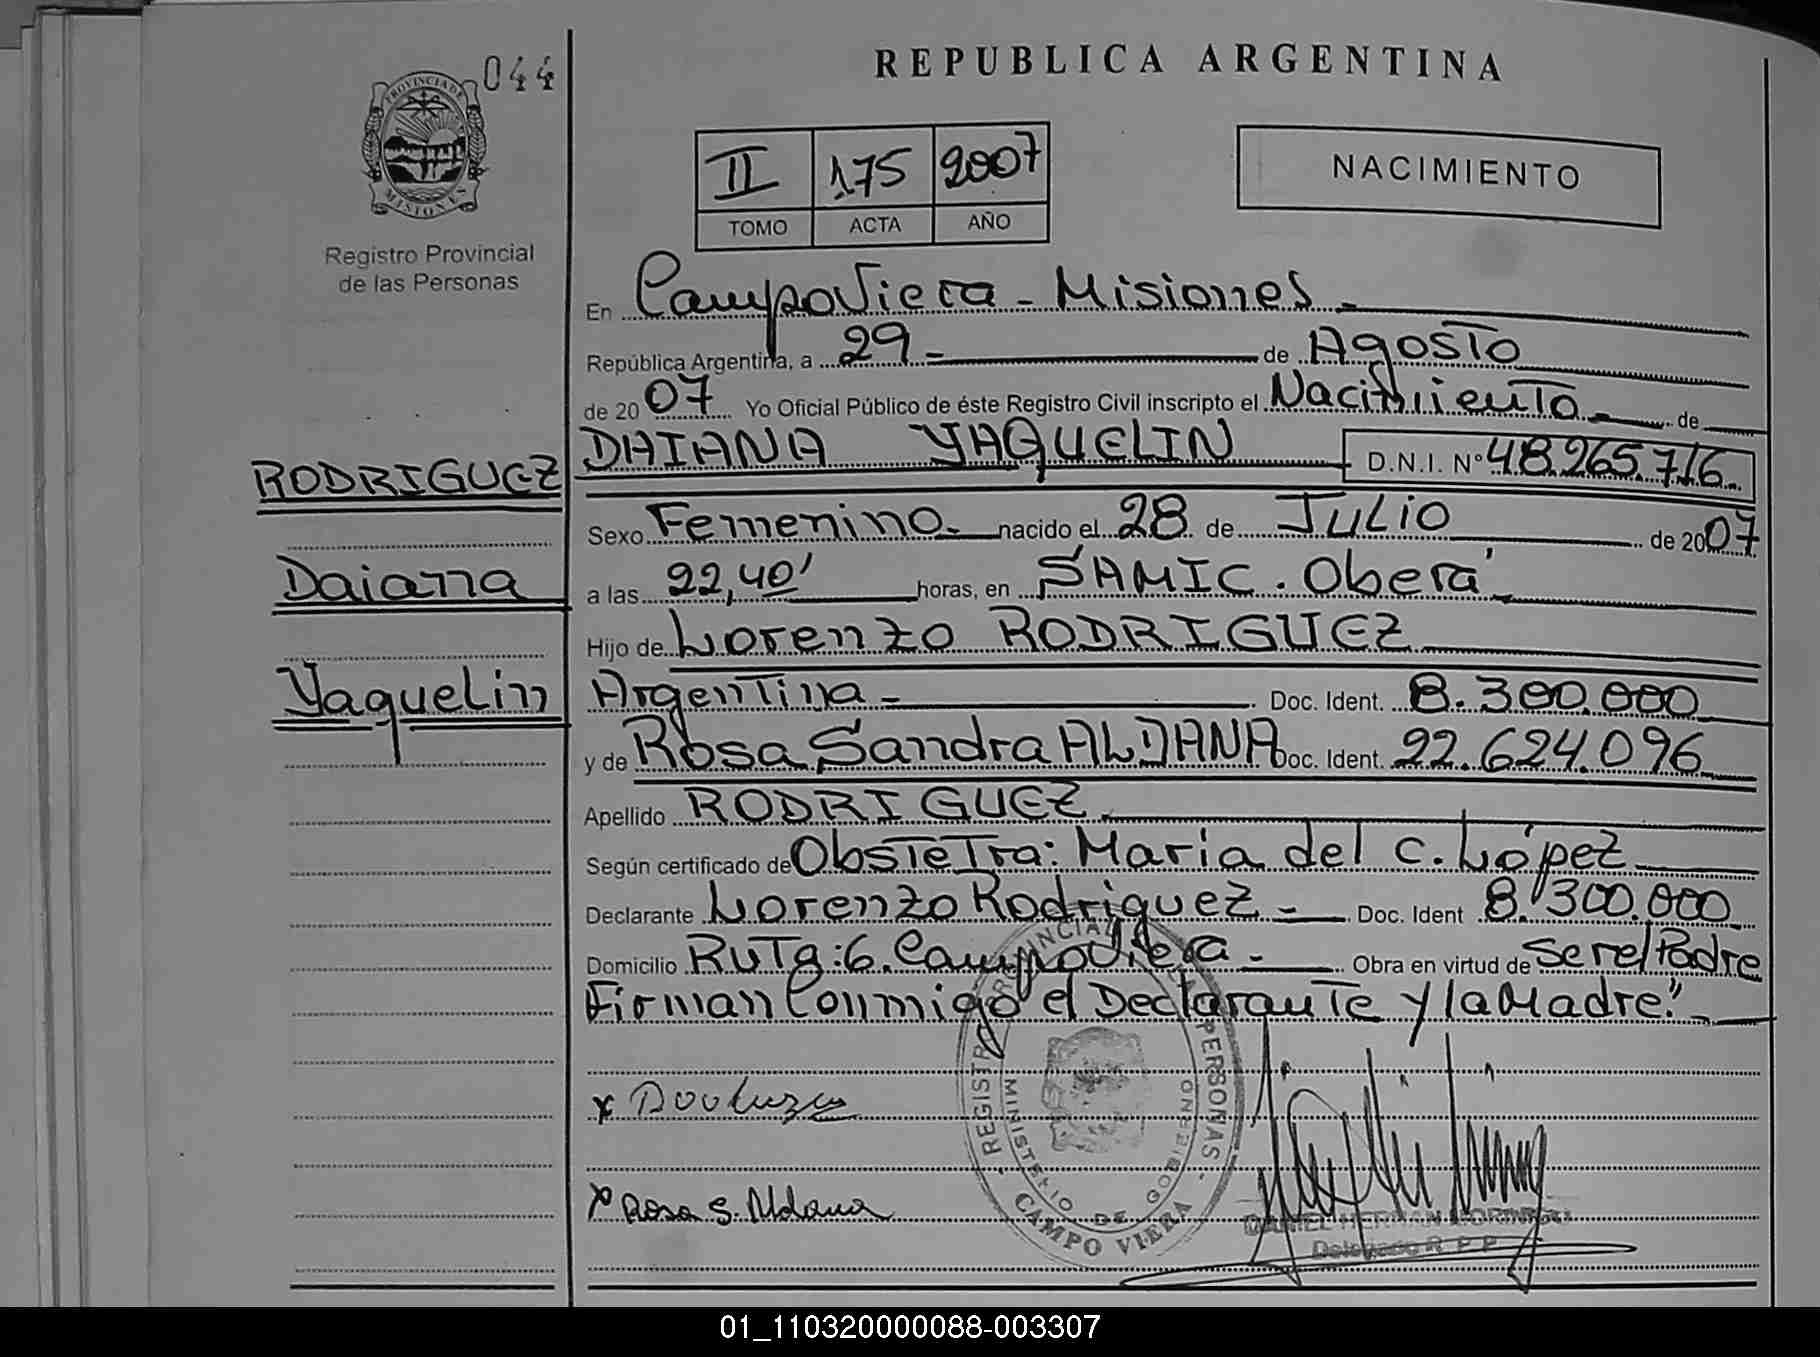 044
PROVINCIA DE
MISIONES
Registro Provincial
de las Personas
REPUBLICA ARGENTINA
II 175 2007
TOMO ACTA AÑO
NACIMIENTO
En CampoViera - Misiones -
República Argentina, a 29 - de Agosto
de 2007 Yo Oficial Público de éste Registro Civil inscripto el Nacimiento - de
RODRIGUEZ DAIANA YAQUELIN D.N.I. N° 48.265.716
Sexo Femenino - nacido el 28 de Julio de 2007
Daiana a las 22,40' horas, en SAMIC. Oberá
Hijo de Lorenzo RODRIGUEZ
Yaquelin Argentina - Doc. Ident. 8.300.000
y de Rosa Sandra ALDANA Doc. Ident. 22.624.096
Apellido RODRIGUEZ
Según certificado de Obstetra: Maria del C. López
Declarante Lorenzo Rodriguez - Doc. Ident 8.300.000
Domicilio Ruta: 6. CampoViera - Obra en virtud de ser el Padre
Firman Conmigo el Declarante y la Madre."
REGISTRO PROVINCIAL DE LAS PERSONAS
MINISTERIO DE GOBIERNO
CAMPO VIERA
x Rosa S. Aldana
DANIEL HERNAN MORINIGO
Delegado R. P. P.
01_110320000088-003307